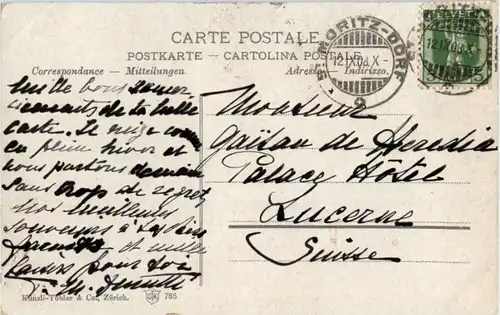 CARTE POSTALE
POSTKARTE - CARTOLINA POSTALE
Correspondance - Mitteilungen. Adresse - Indirizzo.
ST. MORITZ-DORF
12.IX.08.X-
5
de bons
de ta belle
carte. Il neige comme
en plein hiver et
nous partons demain
sans trop de regret
Nos meilleurs
souvenirs à
et mille
baisers pour toi
Monsieur
Gaëtan de Heredia
Palace Hôtel
Lucerne
Suisse
Künzli-Tobler & Co., Zürich. 785